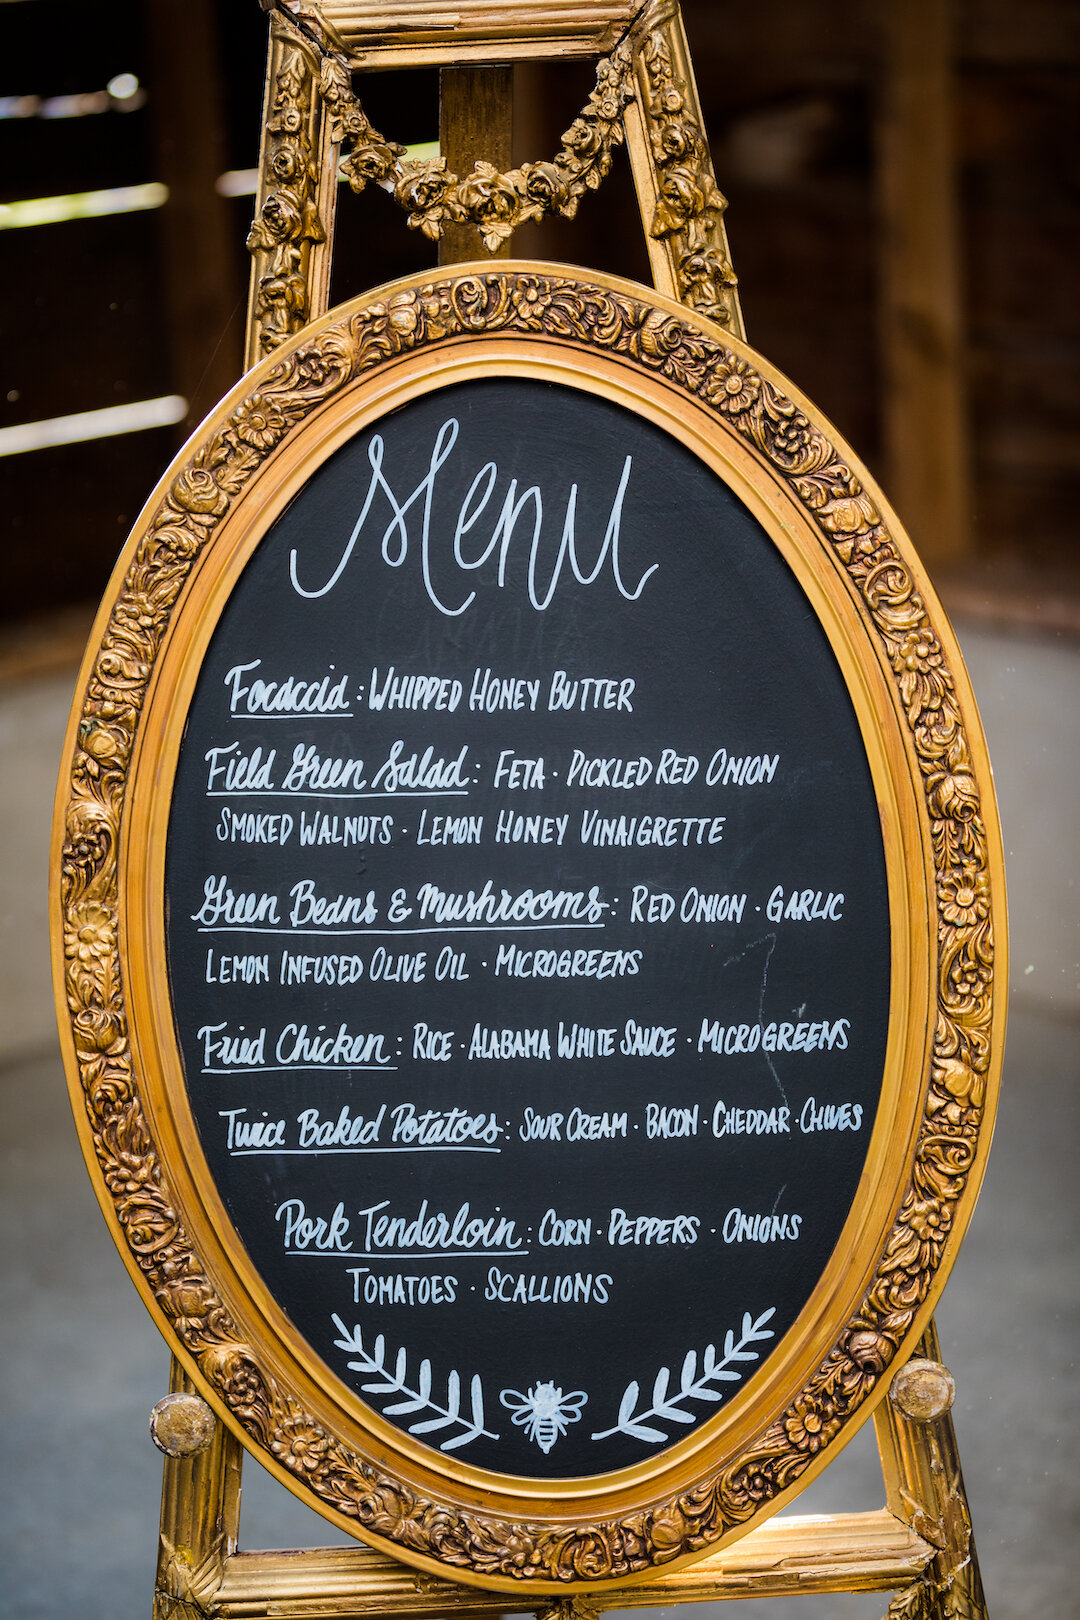 Menu
Focaccia: WHIPPED HONEY BUTTER
Field Green Salad: FETA · PICKLED RED ONION
SMOKED WALNUTS · LEMON HONEY VINAIGRETTE
Green Beans & Mushrooms: RED ONION · GARLIC
LEMON INFUSED OLIVE OIL · MICROGREENS
Fried Chicken: RICE · ALABAMA WHITE SAUCE · MICROGREENS
Twice Baked Potatoes: SOUR CREAM · BACON · CHEDDAR · CHIVES
Pork Tenderloin: CORN · PEPPERS · ONIONS
TOMATOES · SCALLIONS